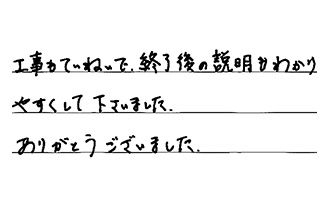 工事もていねいで、終了後の説明もわかり
やすくして下さいました。
ありがとうございました。